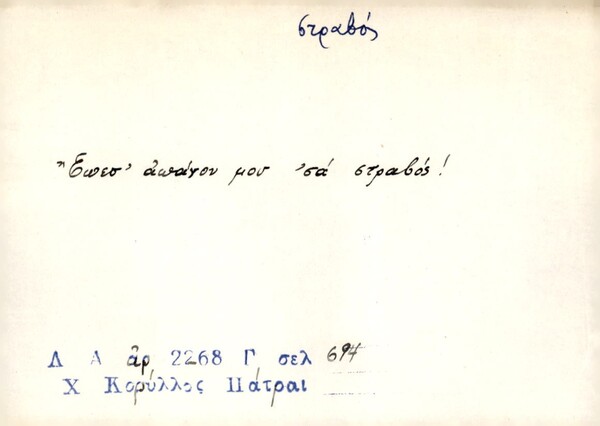 στραβός
Ἔπεσ' ἀπάνου μου 'σά στραβός!
Λ Α ἀρ 2268 Γ σελ 694
Χ Κορύλλος Πάτραι